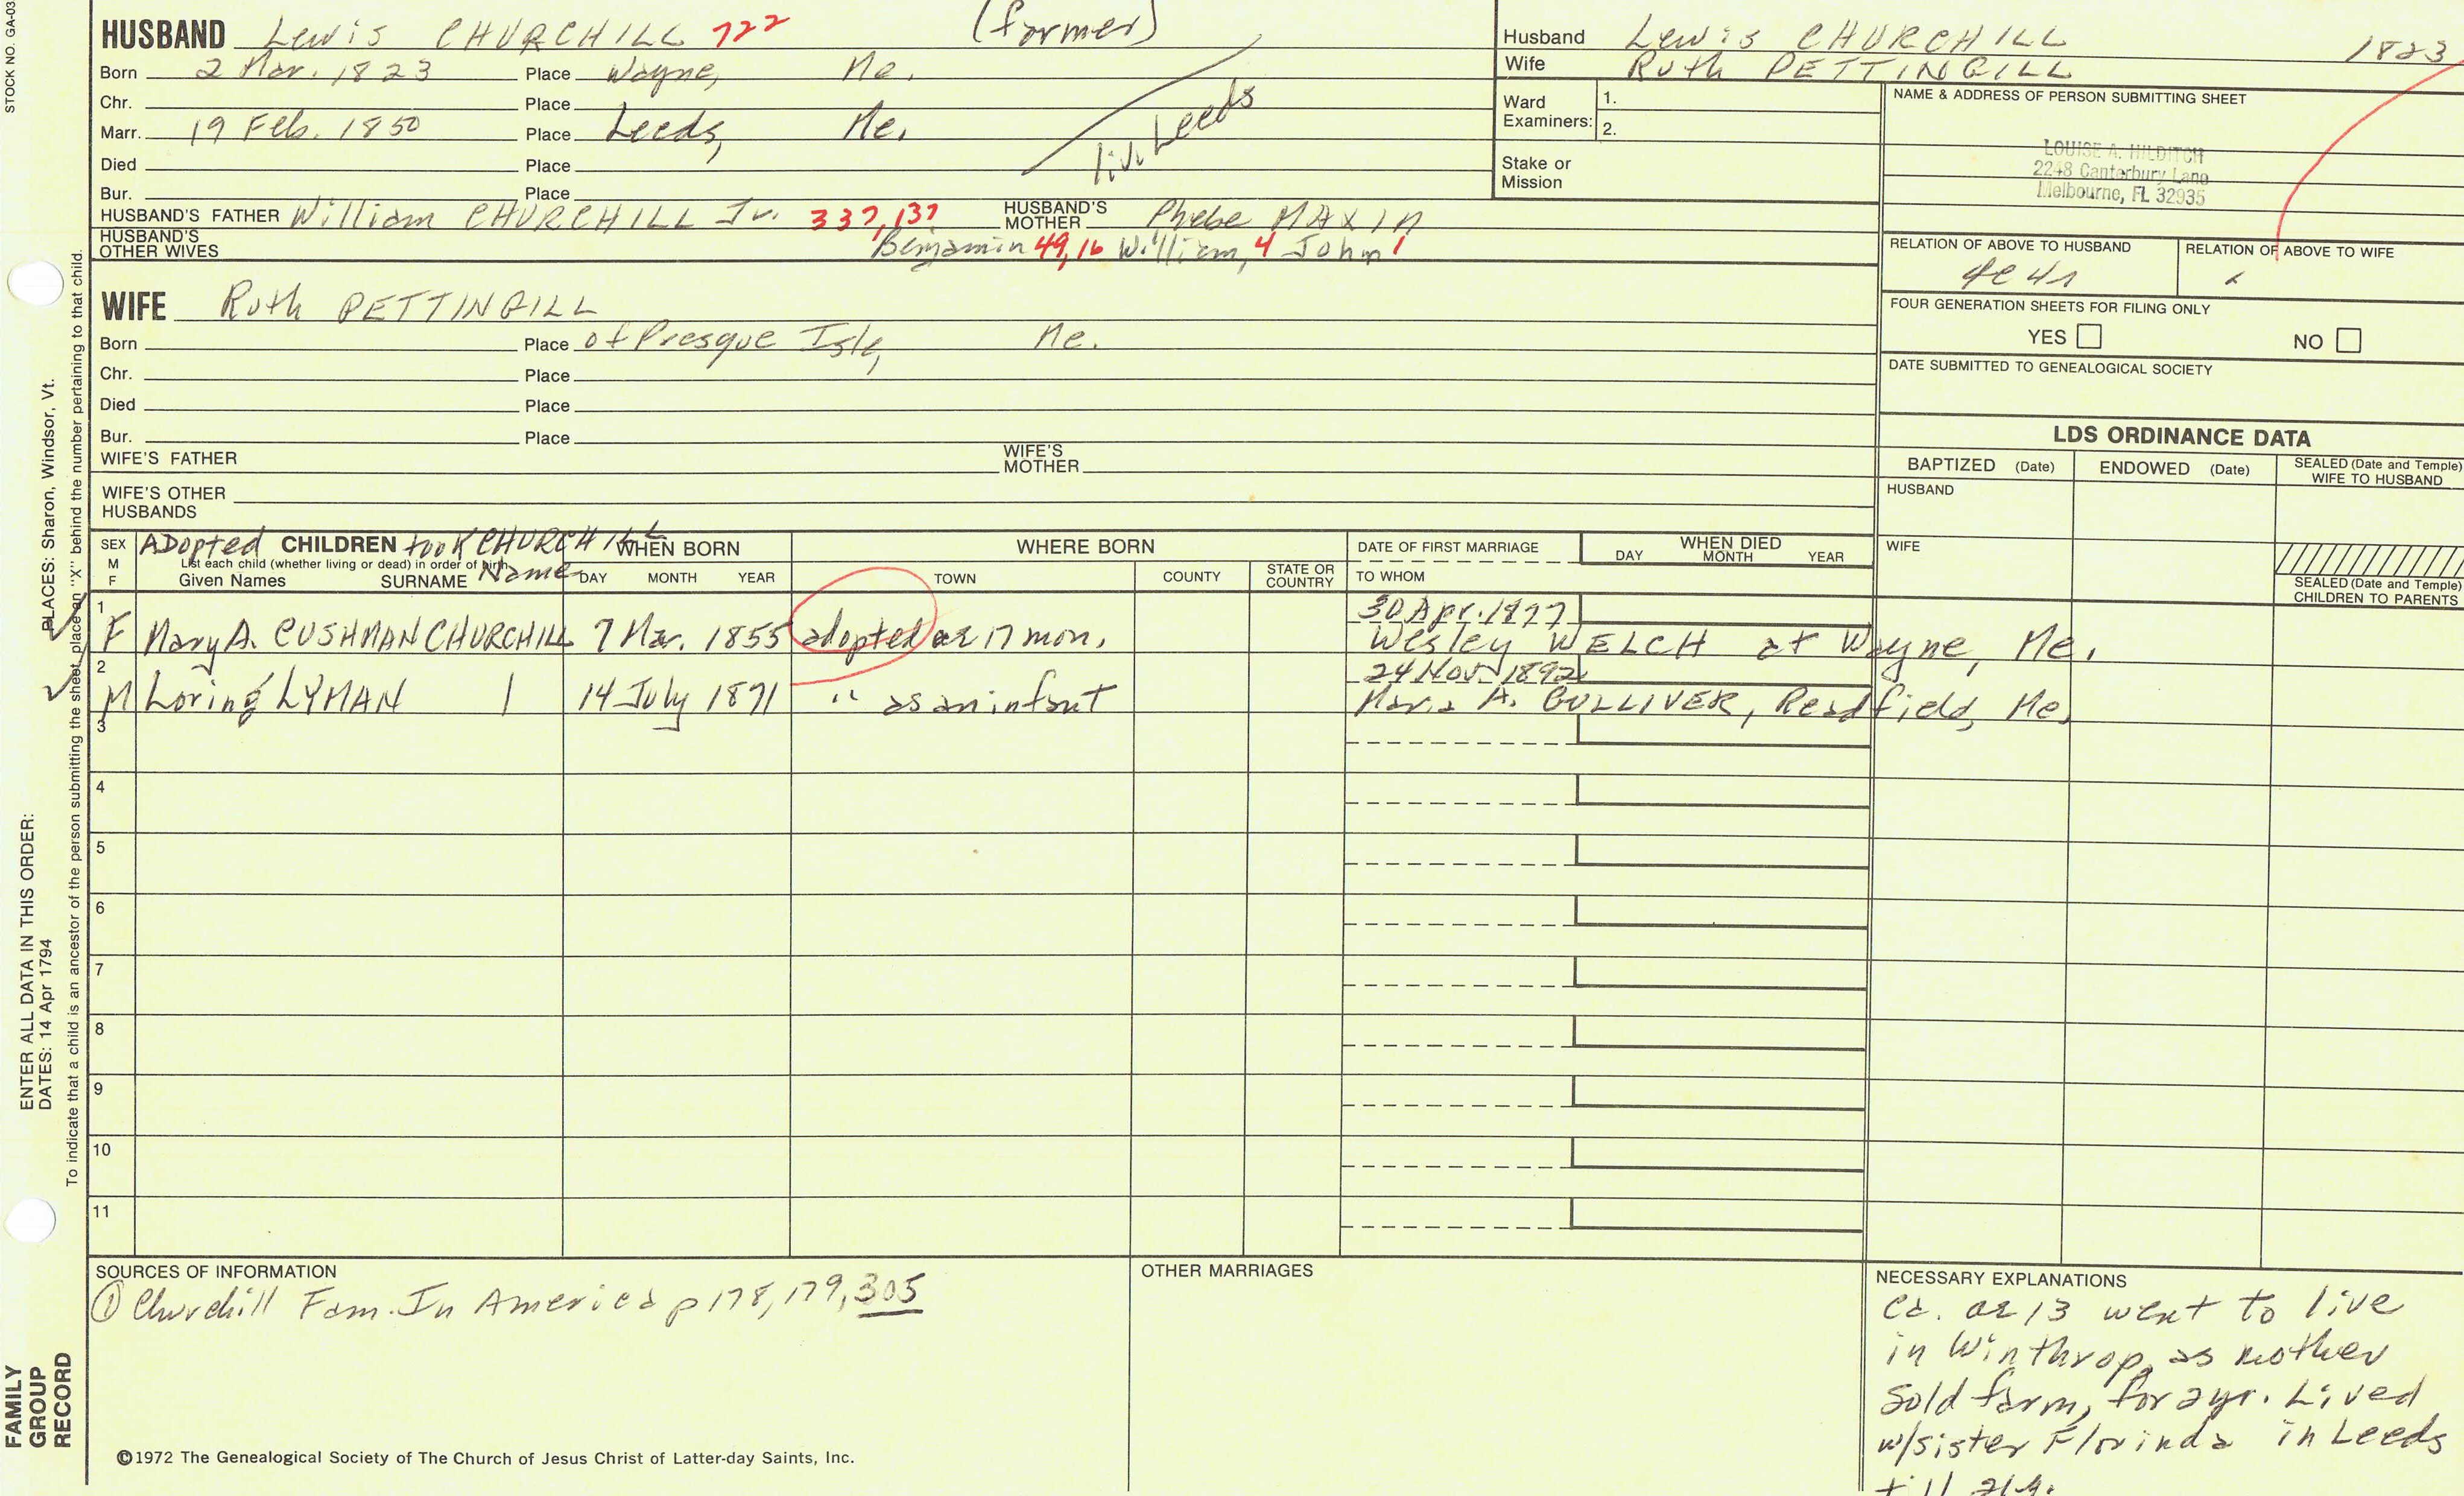 STOCK NO. GA-03
HUSBAND Lewis CHURCHILL 722 (farmer)
Born 2 Mar. 1823 Place Wayne, Me.
Chr. Place
Marr. 19 Feb. 1850 Place Leeds, Me.
Died Place
Bur. Place
liv. Leeds
HUSBAND'S FATHER William CHURCHILL Jr. 337, 137 HUSBAND'S MOTHER Phebe MAXIM
HUSBAND'S OTHER WIVES
Benjamin 49, 16 William, 4 John 1
WIFE Ruth PETTINGILL
Born Place of Presque Isle, Me.
Chr. Place
Died Place
Bur. Place
WIFE'S FATHER WIFE'S MOTHER
WIFE'S OTHER HUSBANDS
Husband Lewis CHURCHILL 1823
Wife Ruth PETTINGILL
Ward Examiners: 1.
2.
Stake or Mission
NAME & ADDRESS OF PERSON SUBMITTING SHEET
LOUISE A. HILDITCH
2248 Canterbury Lane
Melbourne, FL 32935
RELATION OF ABOVE TO HUSBAND RELATION OF ABOVE TO WIFE
FOUR GENERATION SHEETS FOR FILING ONLY
YES NO
DATE SUBMITTED TO GENEALOGICAL SOCIETY
LDS ORDINANCE DATA
BAPTIZED (Date) ENDOWED (Date) SEALED (Date and Temple) WIFE TO HUSBAND
HUSBAND
WIFE
SEALED (Date and Temple) CHILDREN TO PARENTS
SEX M F
Adopted CHILDREN took CHURCHILL Name
List each child (whether living or dead) in order of birth
Given Names SURNAME
WHEN BORN
DAY MONTH YEAR
WHERE BORN
TOWN COUNTY STATE OR COUNTRY
DATE OF FIRST MARRIAGE
TO WHOM
WHEN DIED
DAY MONTH YEAR
1 30 Apr. 1877
F Mary A. CUSHMAN CHURCHILL 7 Mar. 1855 adopted ae 17 mon. Wesley WELCH at Wayne, Me.
2 24 Nov 1892
M Loring LYMAN | 14 July 1871 " as an infant Maria A. GULLIVER, Readfield, Me.
3
4
5
6
7
8
9
10
11
SOURCES OF INFORMATION
① Churchill Fam. In America p 178, 179, 305
OTHER MARRIAGES
NECESSARY EXPLANATIONS
Ca. ae 13 went to live
in Winthrop, as mother
sold farm, for 2 yr. Lived
w/sister Florinda in Leeds
till
©1972 The Genealogical Society of The Church of Jesus Christ of Latter-day Saints, Inc.
FAMILY GROUP RECORD
ENTER ALL DATA IN THIS ORDER:
DATES: 14 Apr 1794
PLACES: Sharon, Windsor, Vt.
To indicate that a child is an ancestor of the person submitting the sheet, place an "X" behind the number pertaining to that child.